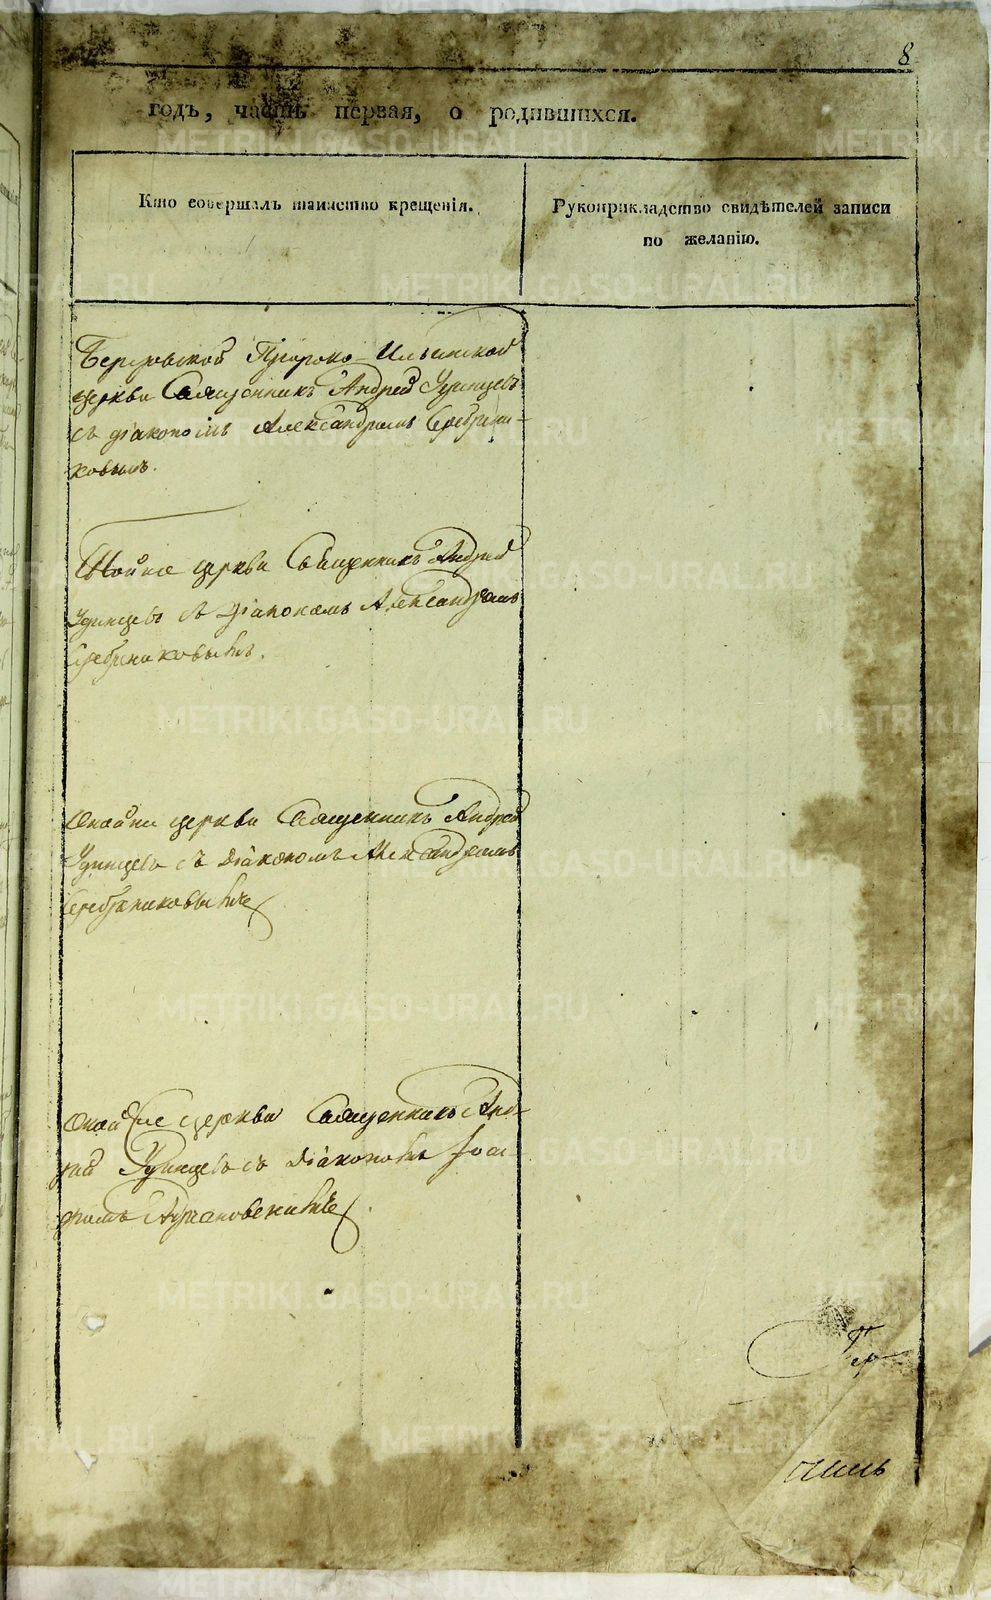 8
годъ, часть первая, о родившихся.
Кто совершалъ таинство крещенія.
Рукоприкладство свидѣтелей записи
по желанію.
Пророко-Ильинской
церкви Священникъ Андрей Удинцевъ
съ діакономъ Александромъ Серебрени-
ковымъ.
Тойже церкви Священникъ Андрей
Удинцевъ съ Діакономъ Александромъ
Серебрениковымъ.
Оной же церкви Священникъ Андрей
Удинцевъ съ Діакономъ Александромъ
Серебряниковымъ
Оной же церкви Священникъ Анд-
рей Удинцевъ съ Діакономъ
METRIKI.GASO-URAL.RU